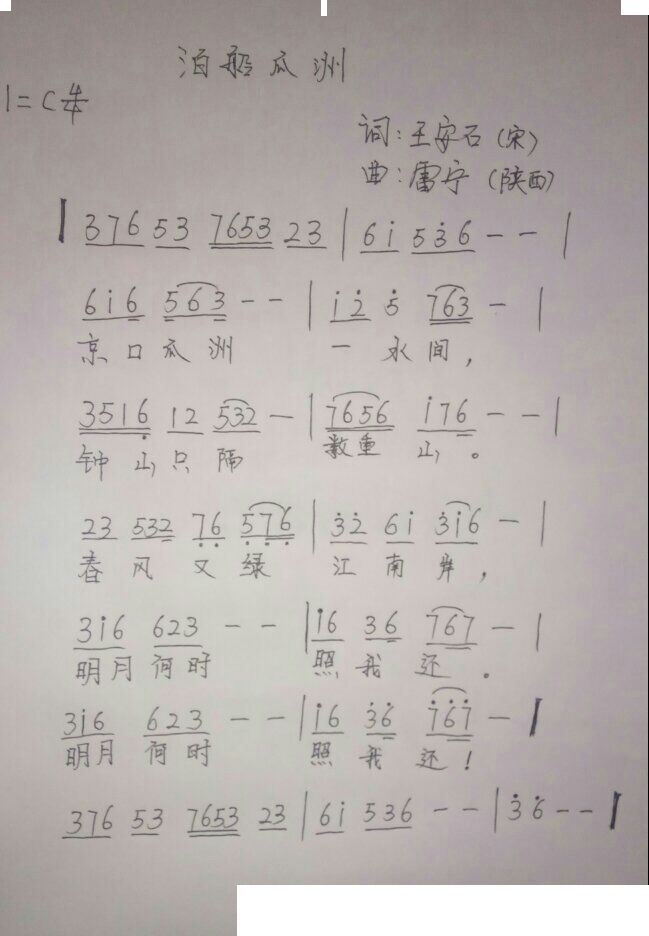 泊船瓜洲
1=C 4/4
词:王安石(宋)
曲:雷宁(陕西)
| 376 53 7653 23 | 6i 536 - - |
6i6 563 - - | i2 5 763 - |
京口瓜洲 一 水间,
3516 12 532 - | 7656 i76 - - |
钟山只隔 数重 山。
23 532 76 576 | 32 6i 3i6 - |
春风又绿 江南岸,
3i6 623 - - | i6 36 767 - |
明月何时 照我还。
3i6 623 - - | i6 36 767 - |
明月何时 照我还!
376 53 7653 23 | 6i 536 - - | 36 - - |